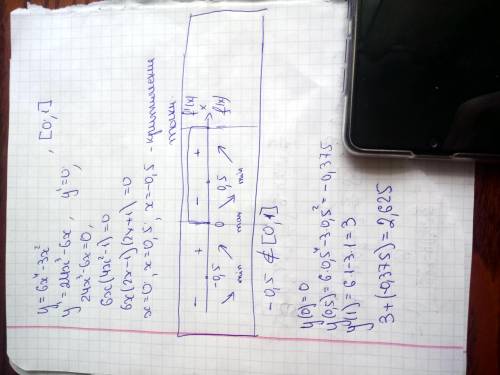 y = 6x⁴-3x² , [0; 1]
y' = 24x³-6x, y'=0;
24x³-6x=0,
6x(4x²-1)=0
6x(2x-1)(2x+1)=0
x=0, x=0,5, x=-0,5 - критические
точки.
- + - + f'(x)
-0,5 0 0,5 x
↘ ↗ ↘ ↗ f(x)
min max min
-0,5 ∉ [0; 1]
y(0)=0
y(0,5)=6·0,5⁴-3·0,5²=-0,375
y(1)=6·1-3·1=3
3+(-0,375)=2,625